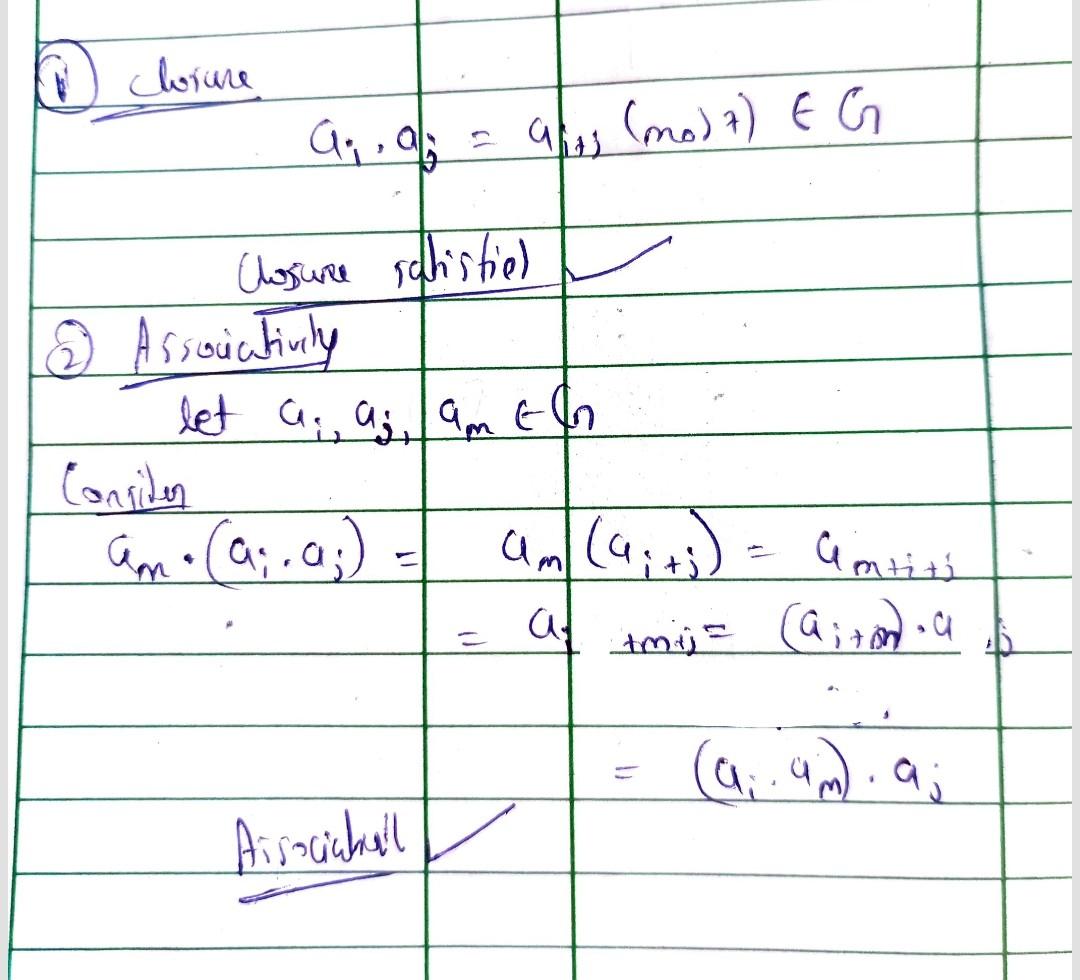 ① Closure
aᵢ . aⱼ = aᵢ₊ⱼ (mod 7) ∈ G
Closure satisfied ✓
② Associativity
let aᵢ, aⱼ, aₘ ∈ G
Consider
aₘ . (aᵢ . aⱼ) = aₘ (aᵢ₊ⱼ) = aₘ₊ᵢ₊ⱼ
= aᵢ₊ₘ₊ⱼ = (aᵢ₊ₘ) . aⱼ
= (aᵢ . aₘ) . aⱼ
✓